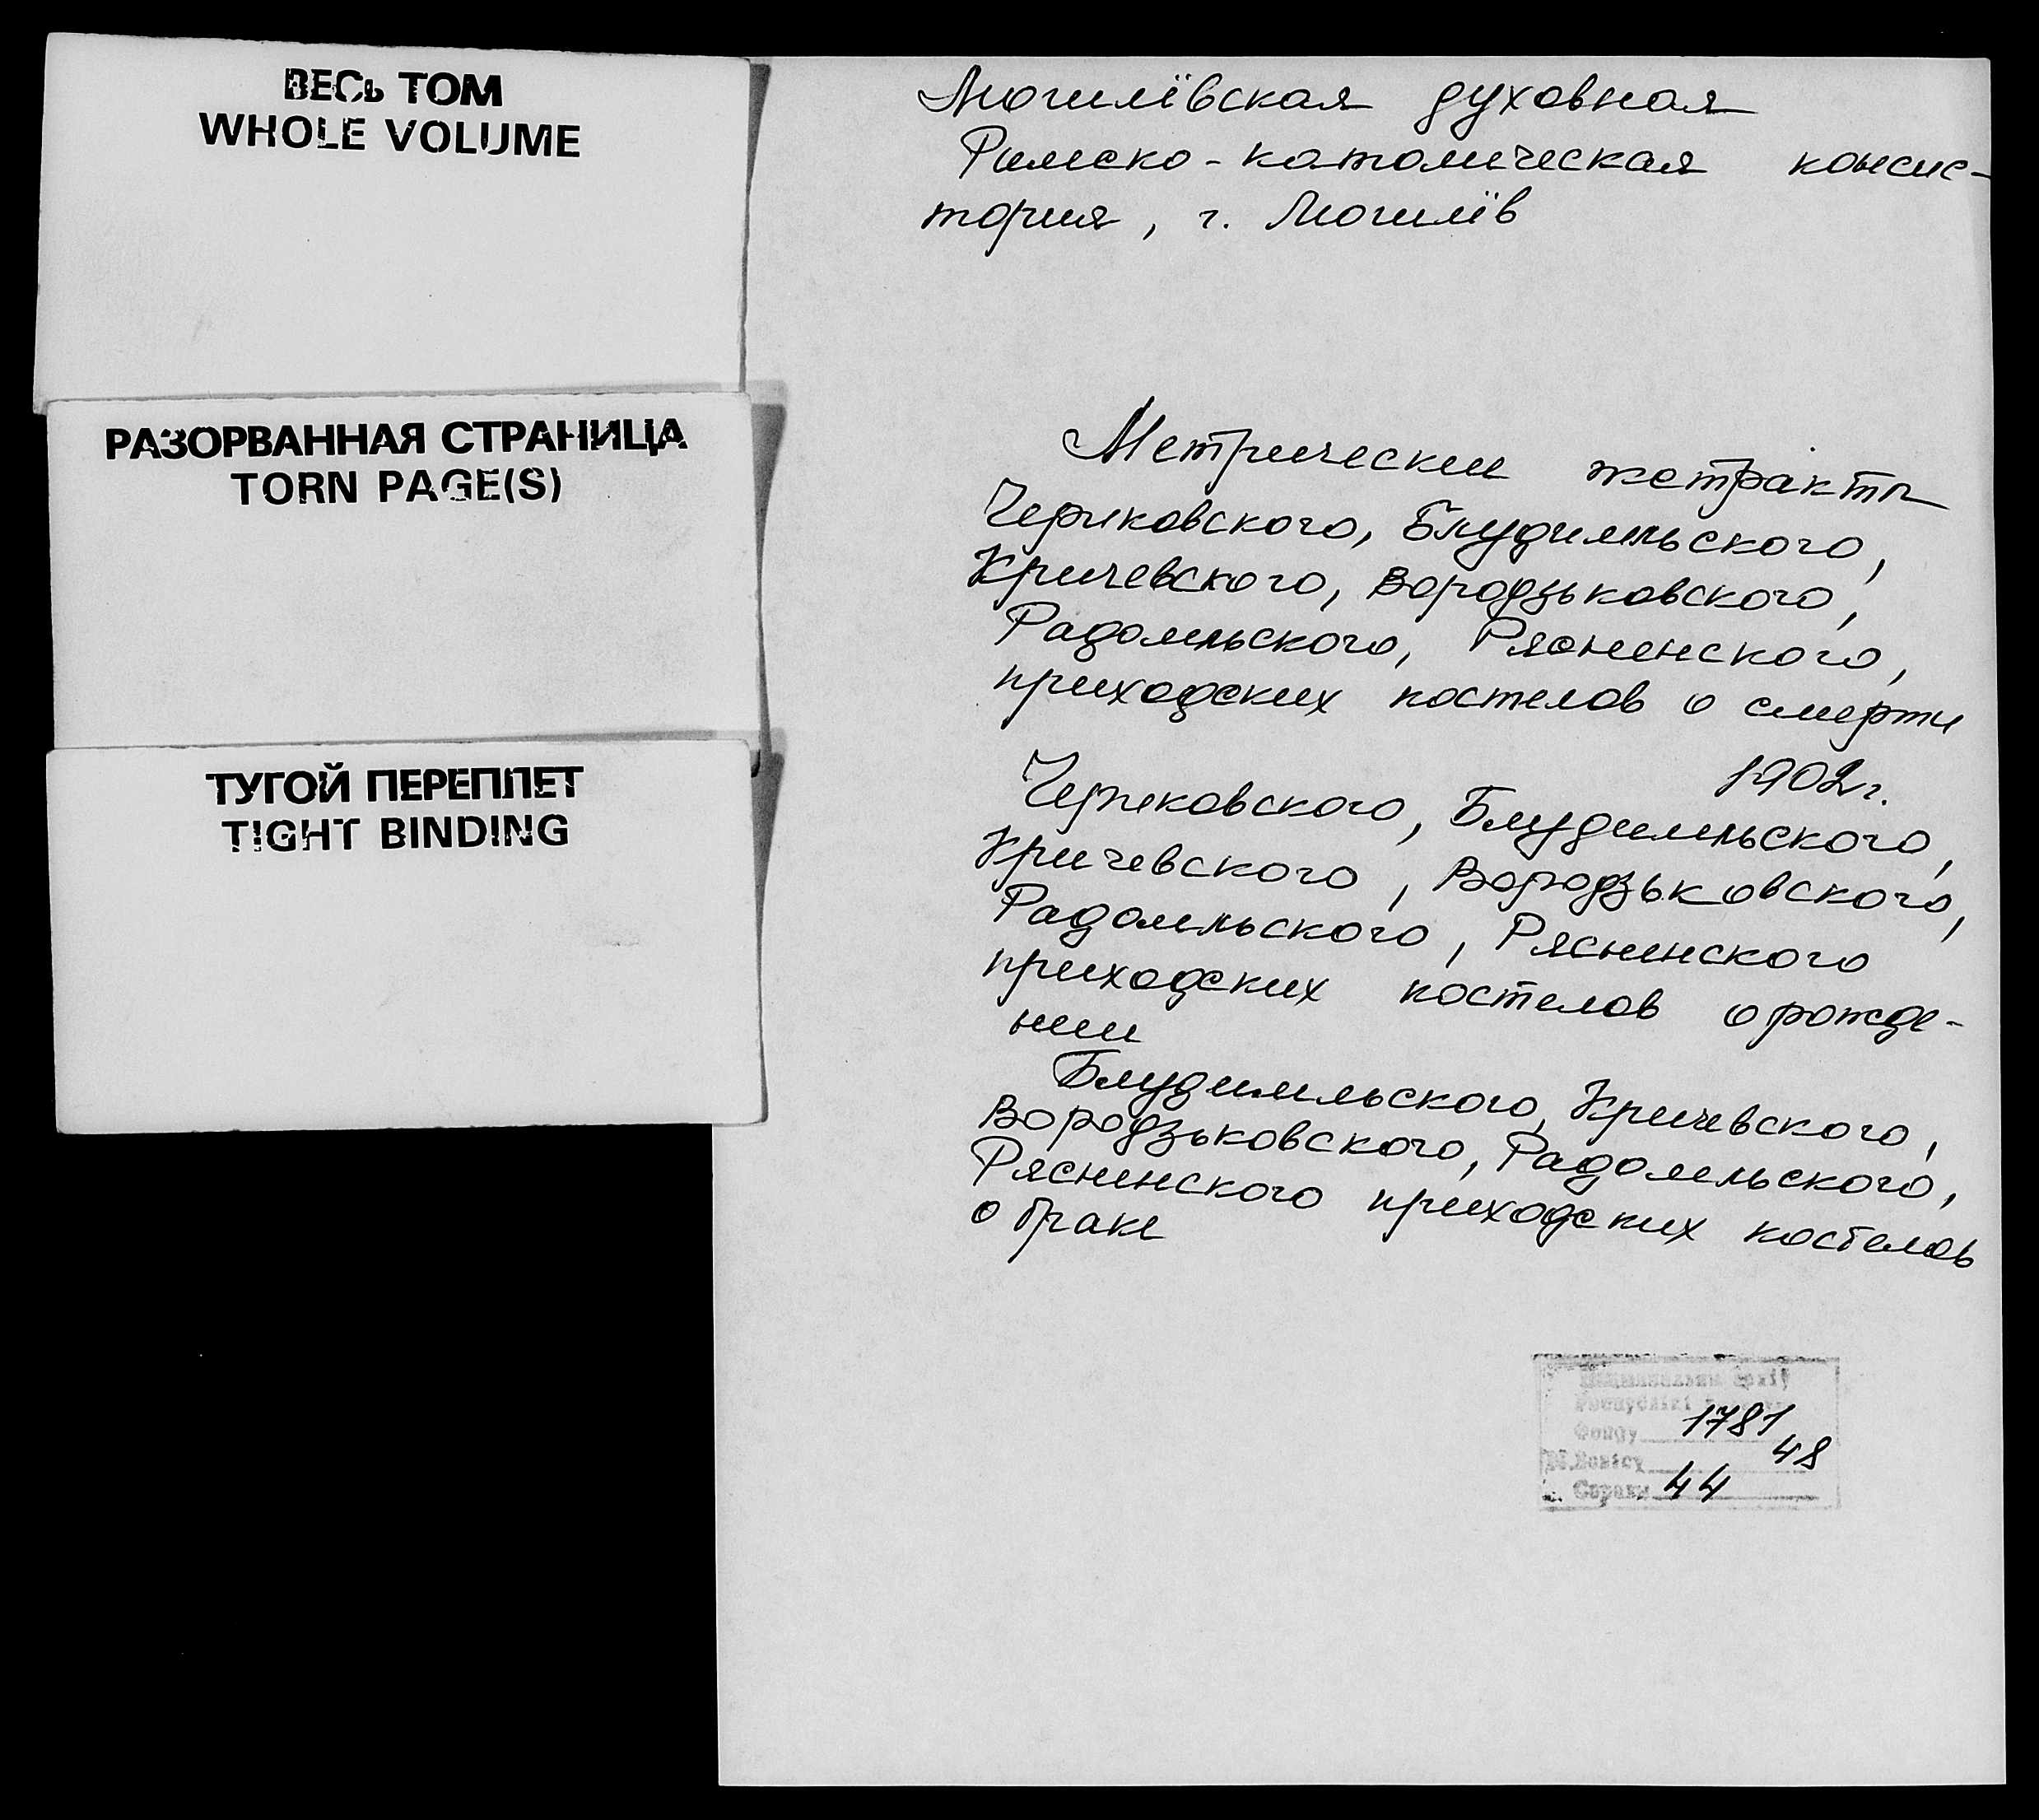 ВЕСЬ ТОМ
WHOLE VOLUME
РАЗОРВАННАЯ СТРАНИЦА
TORN PAGE(S)
ТУГОЙ ПЕРЕПЛЕТ
TIGHT BINDING
Могилёвская духовная
Римско-католическая консис-
тория, г. Могилёв
Метрически экстракты
Чериковского, Блудимльского,
Кричевского, Вородзьковского,
Радомльского, Рясненского,
приходских костелов о смерти
1902 г.
Чериковского, Блудимльского,
Кричевского, Вородзьковского,
Радомльского, Рясненского
приходских костелов о рожде-
нии
Блудимльского, Кричевского,
Вородзьковского, Радомльского,
Рясненского приходских костелов
о браке
Фонду 1781
48
Справы 44